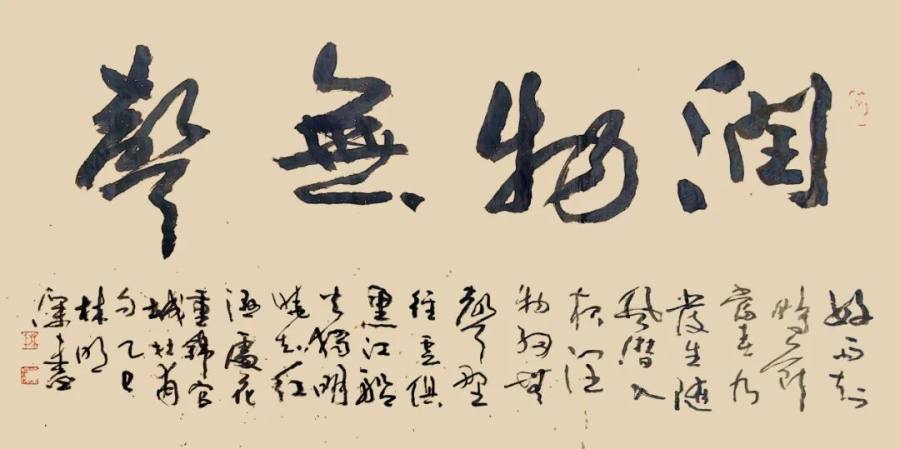 润物無聲
好雨知
時節
當春乃
發生隨
風潛入
夜润
物細無
聲野
徑雲俱
黑江船
火獨明
曉看红
濕處花
重錦官
城杜甫
句乙巳
林明
深書